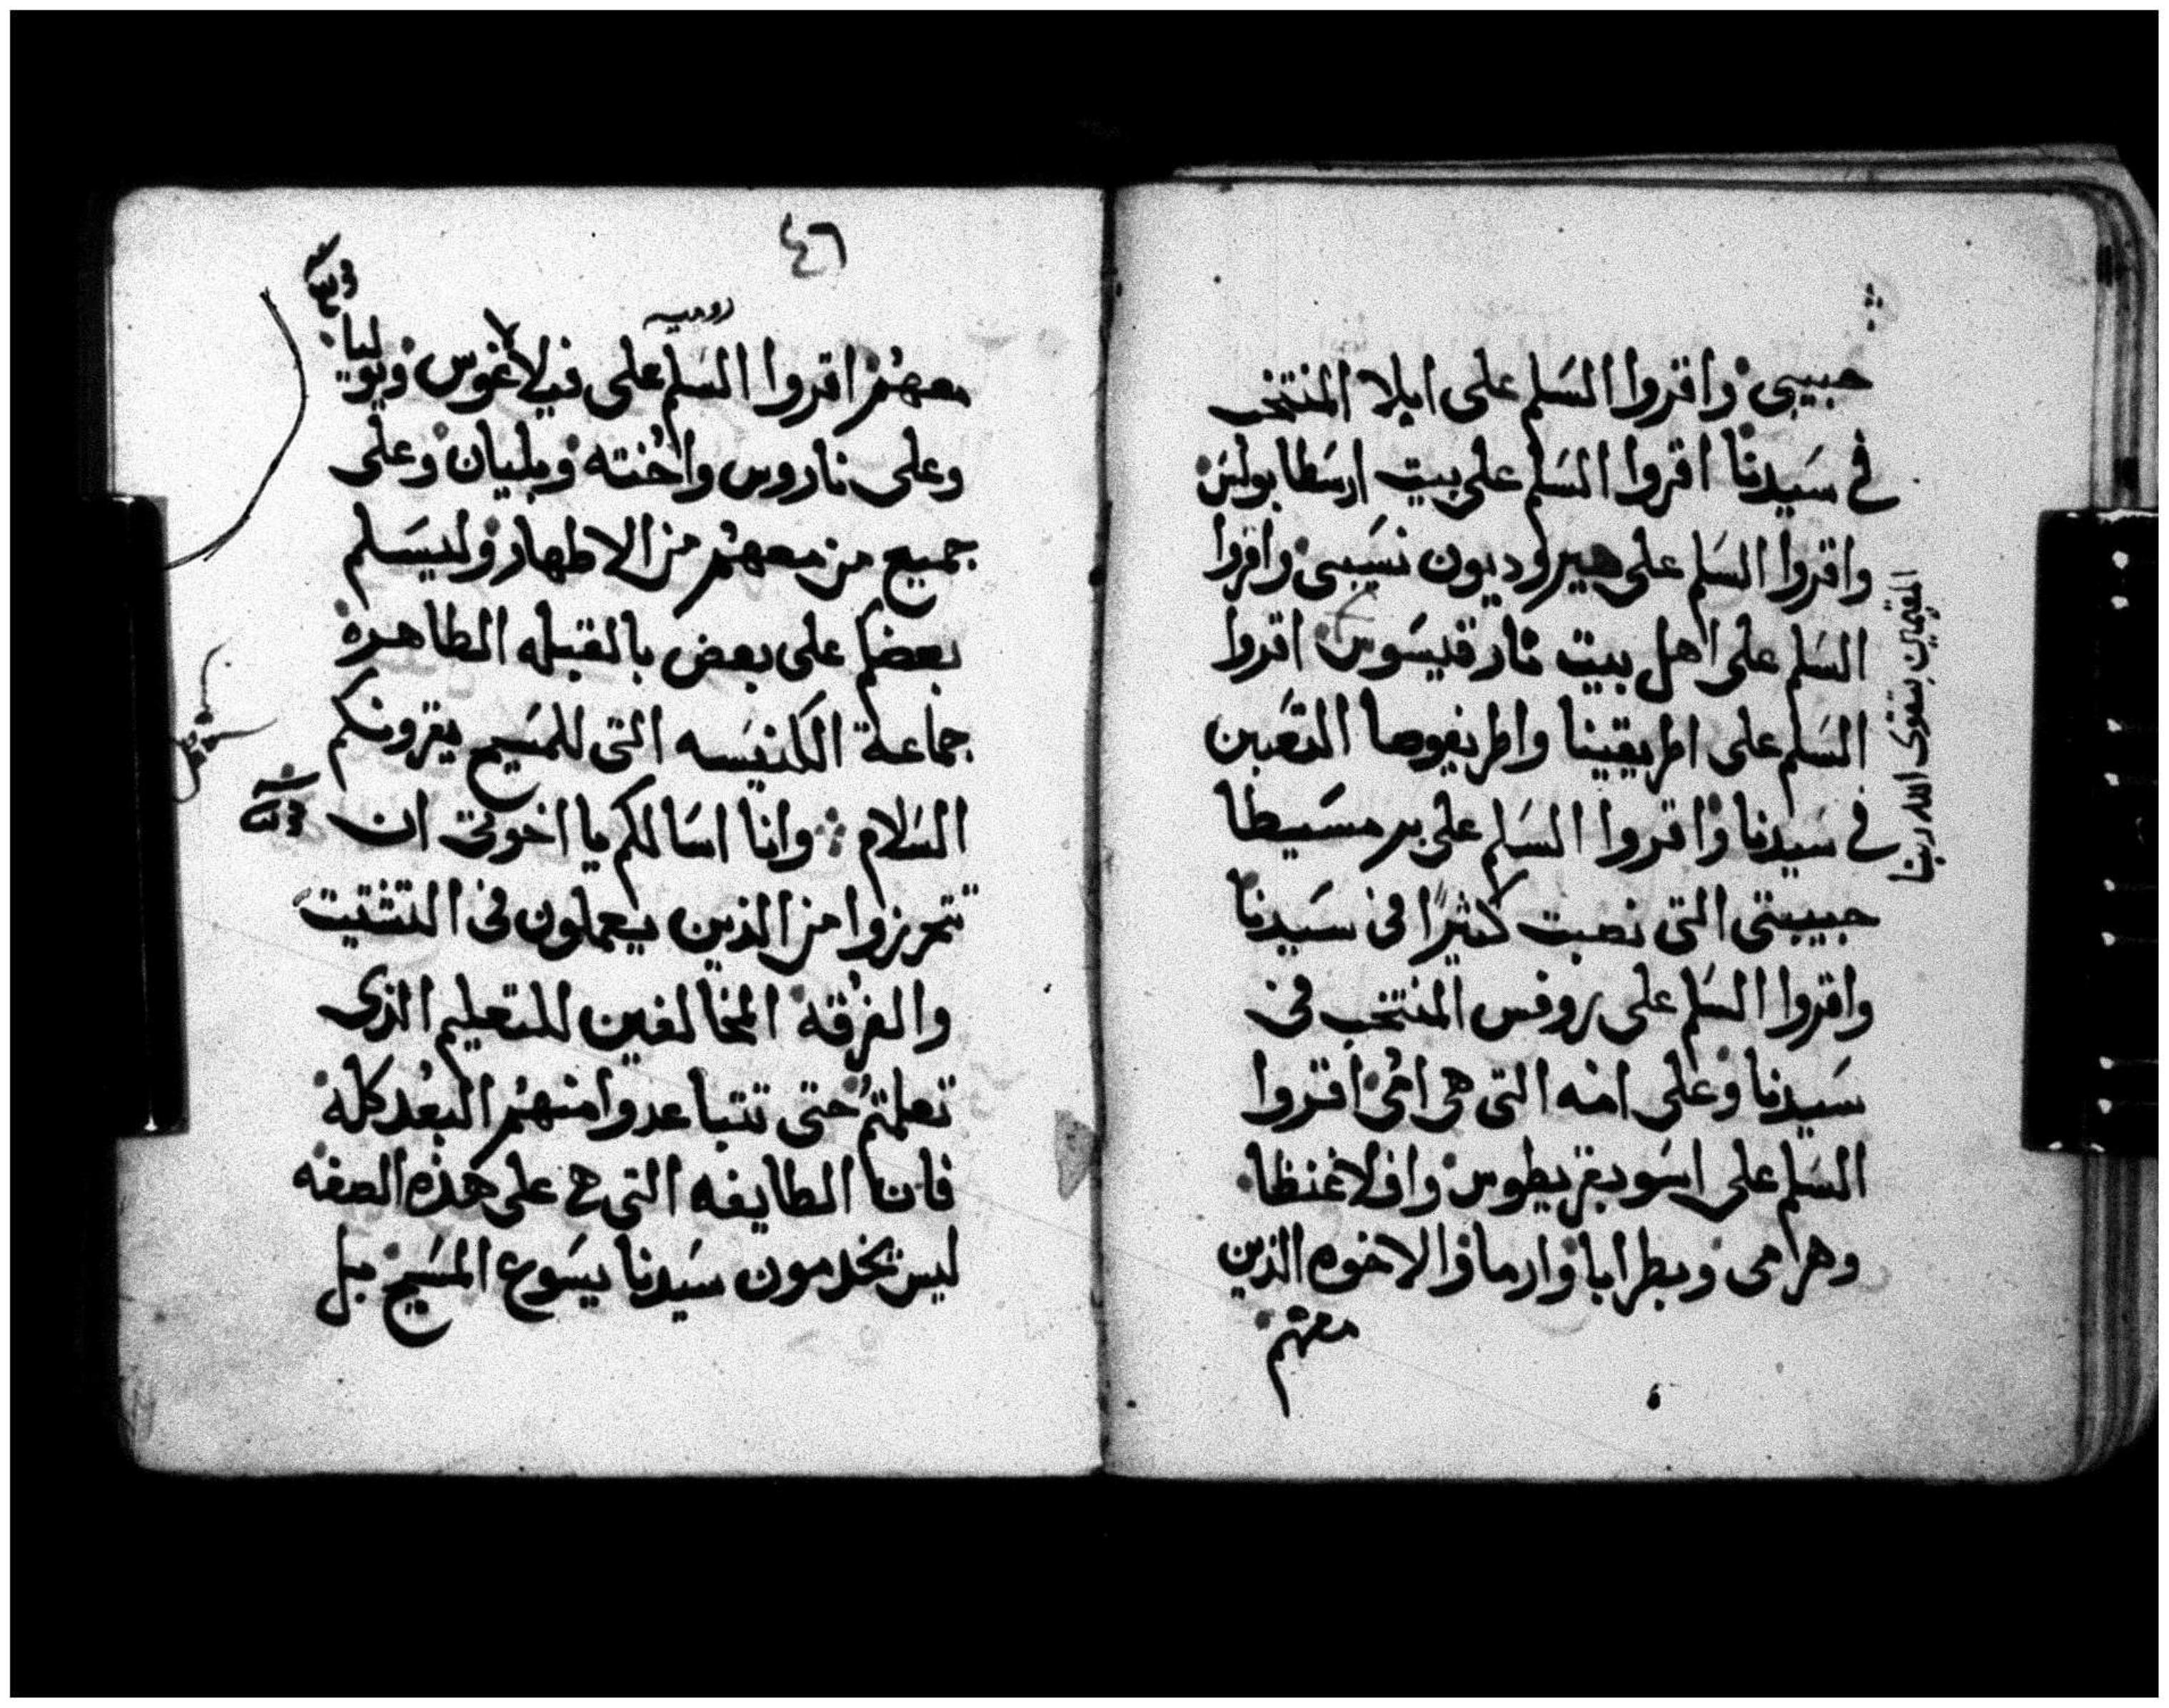 حبيبى واقروا السلم على ابلا المنتخب
فى سيدنا اقروا السلم على بيت ارسطابولس
واقروا السلم على هيروديون نسيبى واقروا
السلم على اهل بيت نارقيسوس اقروا
السلم على اطريقينا واطريفوصا التعبين
فى سيدنا واقروا السلم على برمسيطا
حبيبتى التى نصبت كثيرًا فى سيدنا
واقروا السلم على روفس المنتخب فى
سيدنا وعلى امه التى هى امى اقروا
السلم على اسوبقريطوس وافلاغنطا
وهرامى وبطرابا وارما والاخوه الذين
معهم
المعتصمين بتقوى الله ربنا
٤٦
روميه
معهم اقروا السلم على فيلالاغوس ويوليا
وعلى ناروس واخته وبليان وعلى
جميع من معهم من الاطهار وليسلم
بعضكم على بعض بالقبله الطاهره
جماعة الكنيسه التى للمسيح يقرونكم
السلام وانا اسالكم يا اخوتى ان
تتحرزوا من الذين يعملون فى التشتيت
والفرقه المخالفين للتعليم الذى
تعلمتم حتى تتباعدوا منهم البعد كله
فان الطايفه التى هى على هذه الصفه
ليس تخدمون سيدنا يسوع المسيح بل